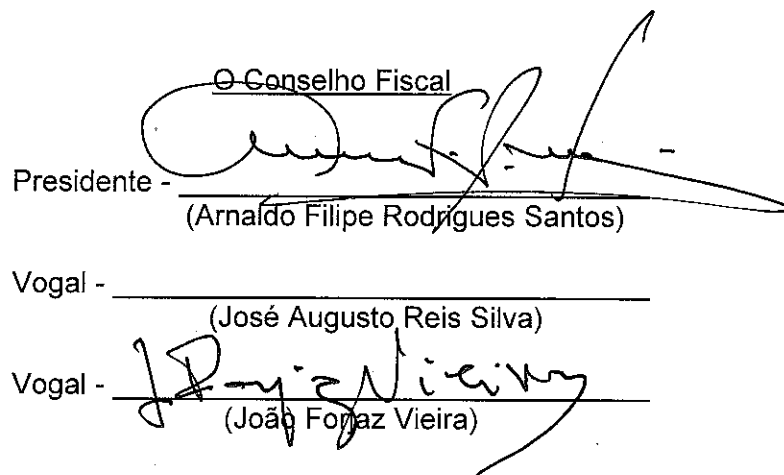 O Conselho Fiscal
Presidente -
(Arnaldo Filipe Rodrigues Santos)
Vogal -
(José Augusto Reis Silva)
Vogal -
(João Forjaz Vieira)